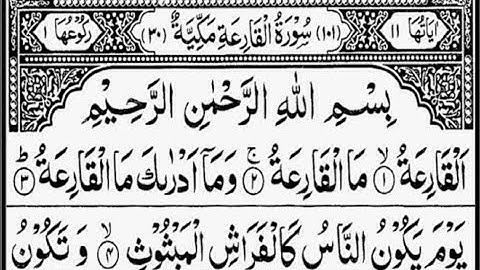 اٰیَاتُهَا ۱۱ (۱۰۱) سُوْرَةُ الْقَارِعَةِ مَكِّيَّةٌ (۳۰) رُكُوْعُهَا ۱
بِسْمِ اللهِ الرَّحْمٰنِ الرَّحِيْمِ
اَلْقَارِعَةُ ۙ﴿۱﴾ مَا الْقَارِعَةُ ۚ﴿۲﴾ وَمَاۤ اَدْرٰىكَ مَا الْقَارِعَةُ ؕ﴿۳﴾
يَوْمَ يَكُوْنُ النَّاسُ كَالْفَرَاشِ الْمَبْثُوْثِ ۙ﴿۴﴾ وَ تَكُوْنُ